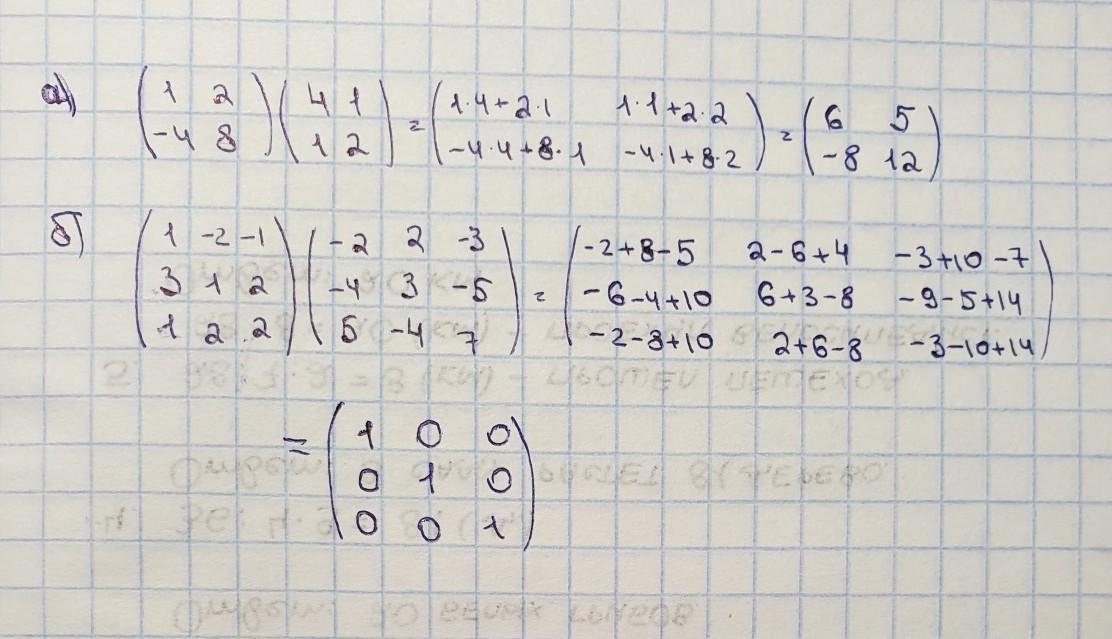 а) (1 2 -4 8)(4 1 1 2) = (1·4+2·1 1·1+2·2 -4·4+8·1 -4·1+8·2) = (6 5 -8 12)
б) (1 -2 -1 3 1 2 1 2 2)(-2 2 -3 -4 3 -5 5 -4 7) = (-2+8-5 2-6+4 -3+10-7 -6-4+10 6+3-8 -9-5+14 -2-8+10 2+6-8 -3-10+14)
= (1 0 0 0 1 0 0 0 1)